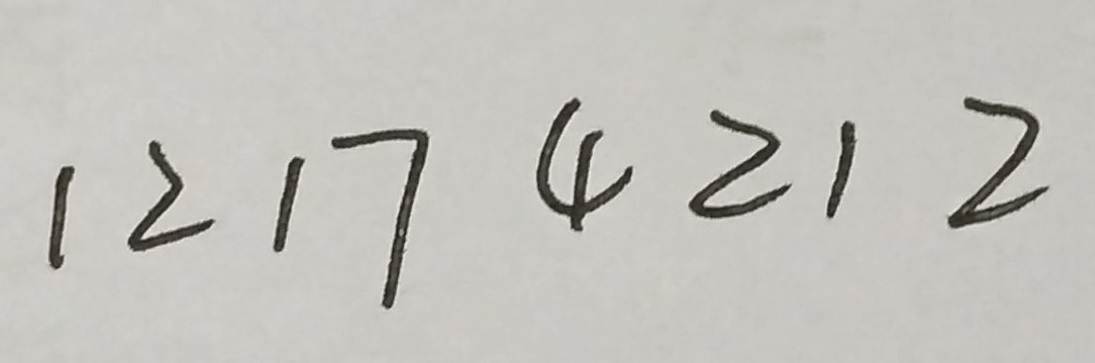 1217 4212